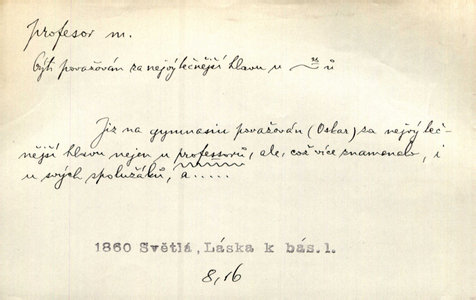 profesor m.
býti považován za nejvýtečnější hlavu u ~ů
Již na gymnasiu považován (Oskar) za nejvýteč-
nější hlavu nejen u professorů, ale, což více znamenalo, i
u svých spolužáků, a.....
1860 Světlá, Láska k bás. 1.
8,16